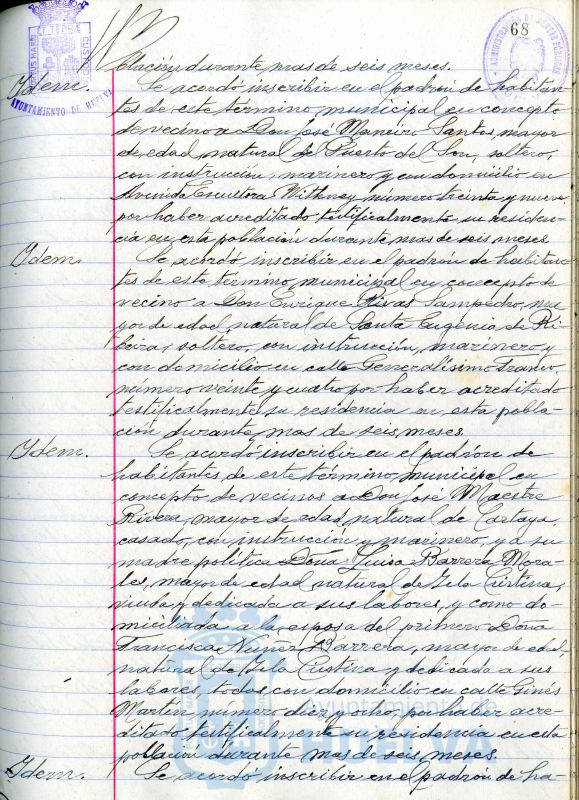 68
AYUNTAMIENTO DE HUELVA
blación durante mas de seis meses.
Idem. Se acordó inscribir en el padrón de habitan-
tes de este término municipal en concepto
de vecino a Don José Maneiro Santos, mayor
de edad, natural del Puerto del Son, soltero,
con instrucción, marinero y con domicilio en
Avenida Escultora Withney número treinta y nueve
por haber acreditado testificalmente su residen-
cia en esta población durante mas de seis meses.
Idem. Se acordó inscribir en el padrón de habitan-
tes de este término municipal en concepto de
vecino a Don Enrique Rivas Sampedro, ma-
yor de edad natural de Santa Eugenia de Ri-
beira, soltero, con instrucción, marinero y
con domicilio en calle Generalísimo Franco,
número veinte y cuatro por haber acreditado
testificalmente su residencia en esta pobla-
ción durante mas de seis meses.
Idem. Se acordó inscribir en el padrón de
habitantes de este término municipal en
concepto de vecinos a Don José Maestre
Rivera, mayor de edad natural de Cartaya,
casado, con instrucción y marinero, y a su
madre política Doña Luisa Barrera Mora-
les, mayor de edad natural de Isla Cristina,
viuda y dedicada a sus labores, y como do-
miciliada a la esposa del primero Doña
Francisca Núñez Barrera, mayor de edad
natural de Isla Cristina y dedicada a sus
labores, todos con domicilio en calle Ginés
Martín número diez y ocho, por haber acre-
ditado testificalmente su residencia en esta
población durante mas de seis meses.
Idem. Se acordó inscribir en el padrón de ha-
Ayuntamiento de
HUELVA